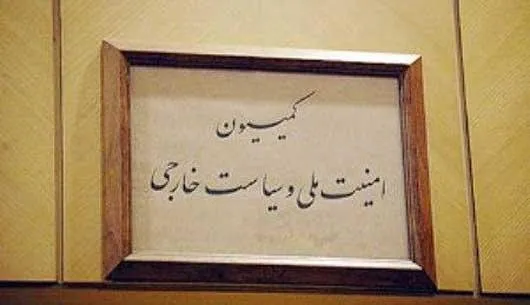 کمیسیون
امنیت ملی و سیاست خارجی